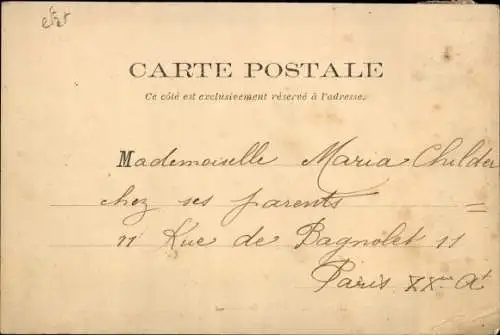 CARTE POSTALE
Ce côté est exclusivement réservé à l'adresse.
Mademoiselle Maria Childer
chez ses parents =
11 Rue de Bagnolet 11
Paris XXme At